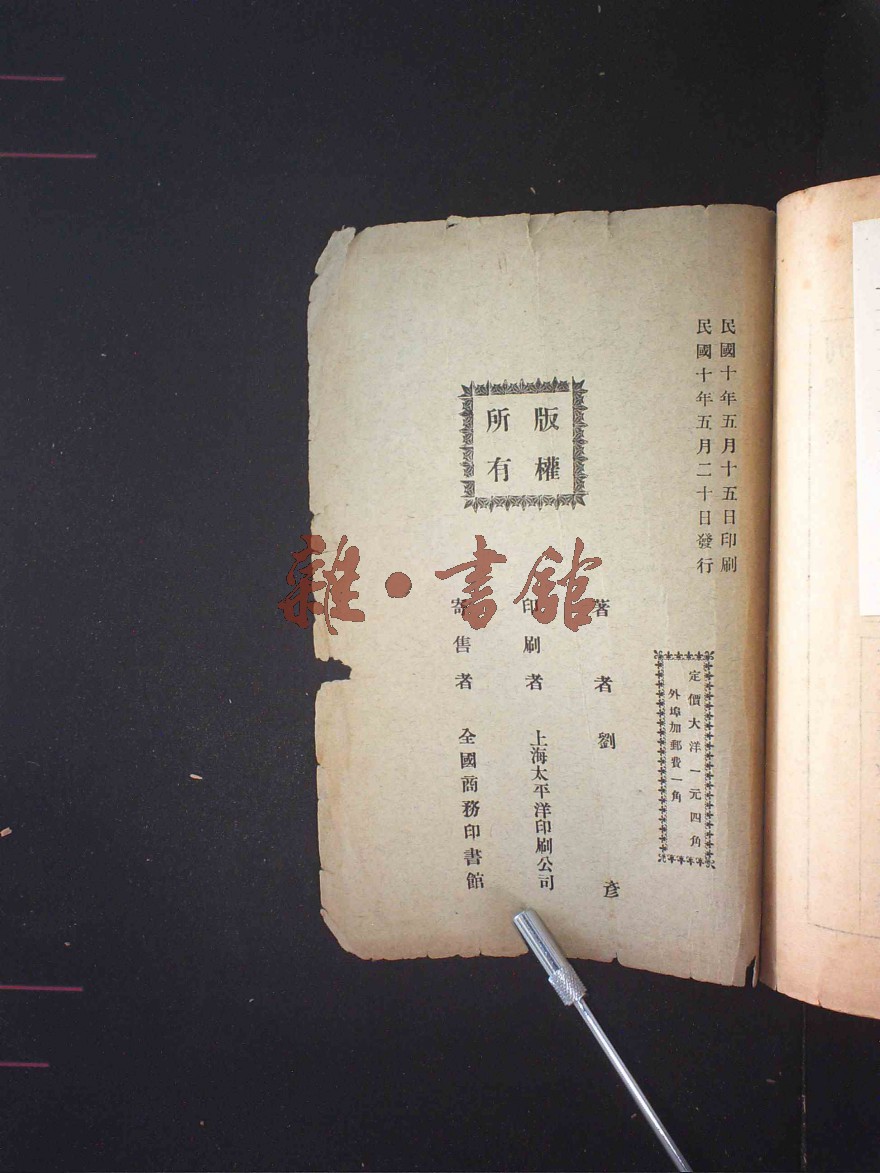 民國十年五月十五日印刷
民國十年五月二十日發行
定價大洋一元四角
外埠加郵費一角
版權
所有
著者劉彥
印刷者上海太平洋印刷公司
寄售者全國商務印書館
雜·書館